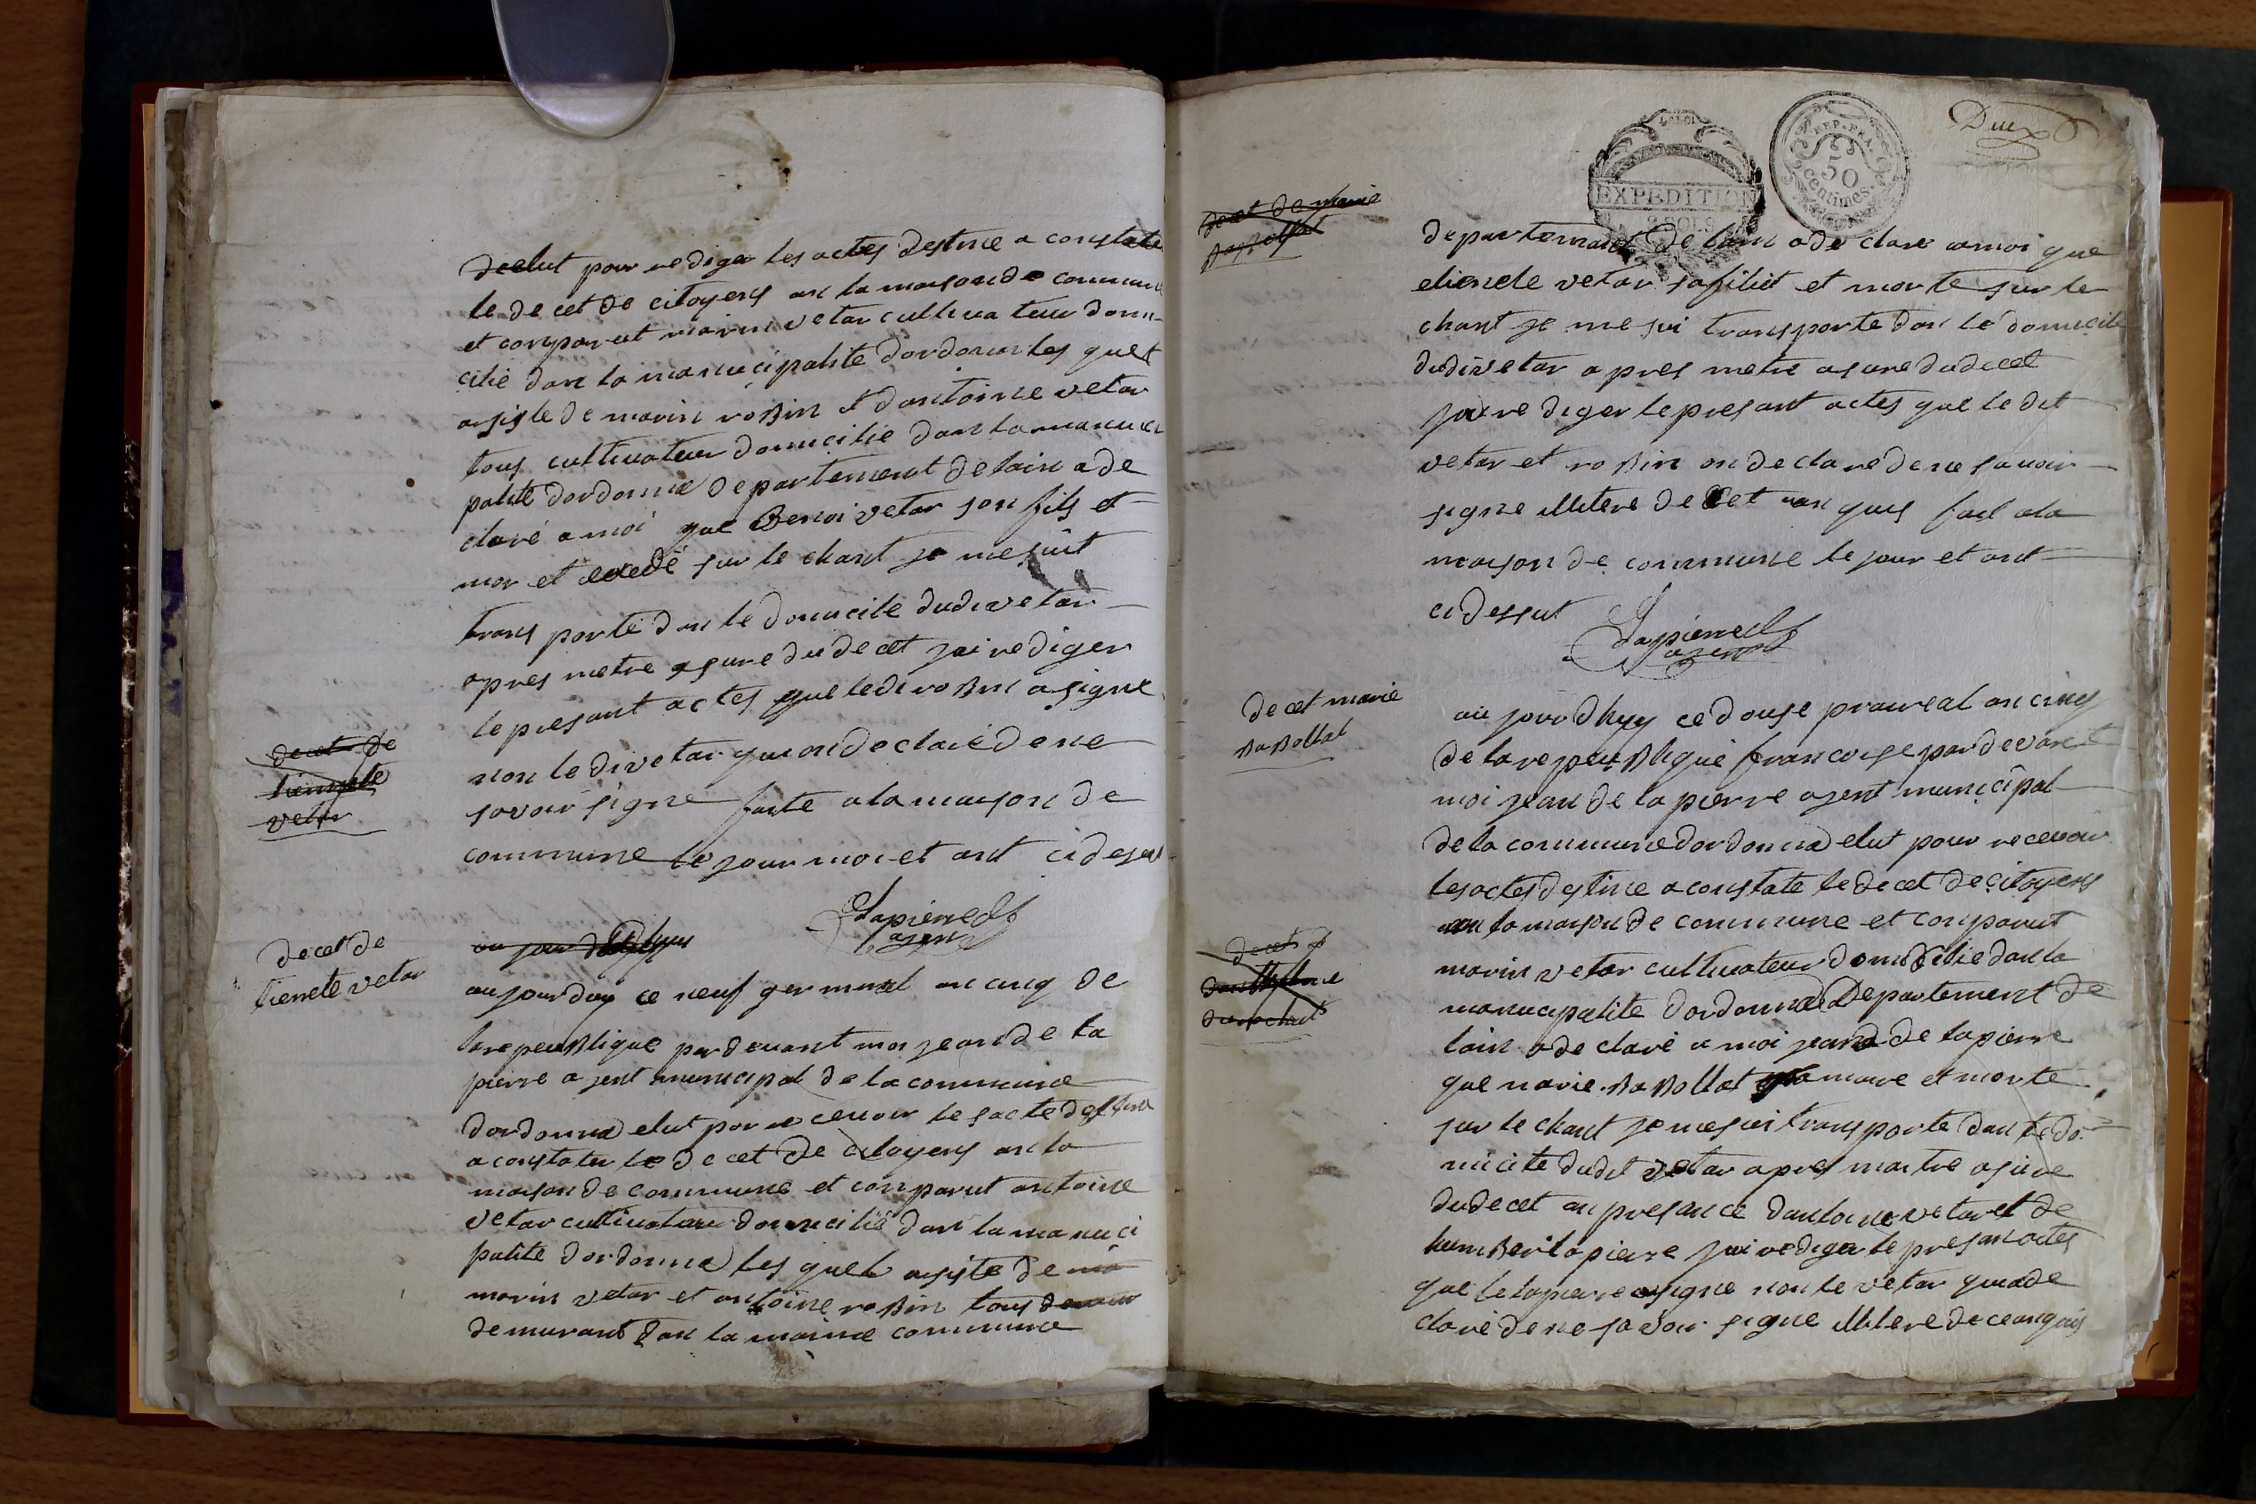 deelut pour rediger les actes destine a constate
le decet de citoyens an la maison de commun
et comparut marin vetar cultivateur domi-
cilie dan la manucipalite dordonna les quel
asiste de marin robin et dantoinne vetar
tous cultivateur domicilie dan la manuci
palite dordonna departement de lain a de
claré a moi que Benoi vetar son fils et
mor et sur le chant je me suit
transporte dan le domicile dudi vetar
apres metre asure du decet jai rediger
le presant actes que ledi robin a signe
non le di vetar qui on declaré de ne
savoir signe faite a la maison de
commune le jour moi et ant ci desu
Lapierre
agent
decet de
vetar
decet de
tiennete vetar
au jourduy ce neuf germinal an cinq de
la republique par devant moi jean de la
pierre agent municipal de la commune
dordonna elut pour recevoir les acte destine
a constater le decet de citoyens an la
maison de commune et comparut antoine
vetar cultivateur domicilié dan la manuci
palite dordonna les quel asiste de
marin vetar et antoine robin tous
demurant dan la maime commune
Deux
LA LOI
EXPEDITION
REP. FRA.
50
centimes.
decet de marie
departemant de lain a de clare a moi que
etienete vetar sa filiet et morte sur le
chant je me sui transporte dan le domicile
dudi vetar apres metre asure du decet
jai rediger le presant actes que le dit
vetar et robin on declare de ne savoir
signe illitere de cet anquis fait a la
maison de commune le jour et ant
ci dessut
Lapierre
agent
decet marie
babollat
au jourdhuy ce douse praireal an cinq
de la republique francoise par devant
moi jean de la pierre agent municipal
de la commune dordonna elut pour recevoir
les actes destine a constate le decet de citoyens
an la maison de commune et comparut
marin vetar cultivateur domicilie dan la
manucipalite dordonna Departement de
lain a de claré a moi jean de lapierre
que marie babollat sa maire et morte
sur le chant je me sui transporte dan le do
micile dudit vetar apres maitre asure
du decet an presance dantoine vetar et de
humber lapierre jai rediger le presan actes
que le lapierre a signe non le vetar qui a de
claré de ne savoir signe illitere de ce anquis